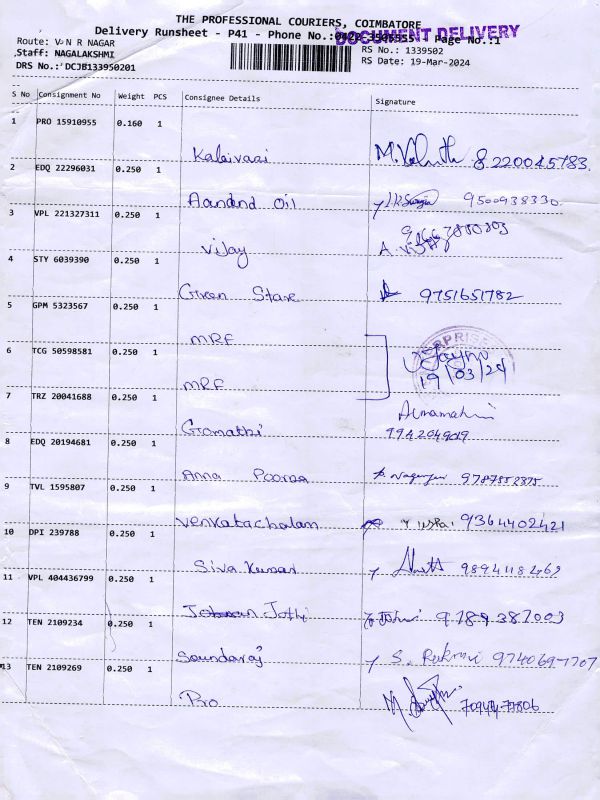 THE PROFESSIONAL COURIERS, COIMBATORE
Delivery Runsheet - P41 - Phone No.: Page No.:1
DOCUMENT DELIVERY
Route: V N R NAGAR RS No.: 1339502
Staff: NAGALAKSHMI RS Date: 19-Mar-2024
DRS No.: DCJB133950201
S No Consignment No Weight PCS Consignee Details Signature
1 PRO 15910955 0.160 1
Kalaivani 8220045783.
2 EDQ 22296031 0.250 1
Aandnd Oil 9500938330.
3 VPL 221327311 0.250 1
Vijay A
4 STY 6039390 0.250 1
Green Stare 9751651782
5 GPM 5323567 0.250 1
MRF
6 TCG 50598581 0.250 1
MRF 19/03/24
7 TRZ 20041688 0.250 1
Gomathi 9942049019
8 EDQ 20194681 0.250 1
Anna Poorna 9787552875
9 TVL 1595807 0.250 1
Venkatachalam 9364402421
10 DPI 239788 0.250 1
Siva Kumar
11 VPL 404436799 0.250 1
Jothi 9789387003
12 TEN 2109234 0.250 1
Soundaraj S. Rukmi
13 TEN 2109269 0.250 1
Pro M.